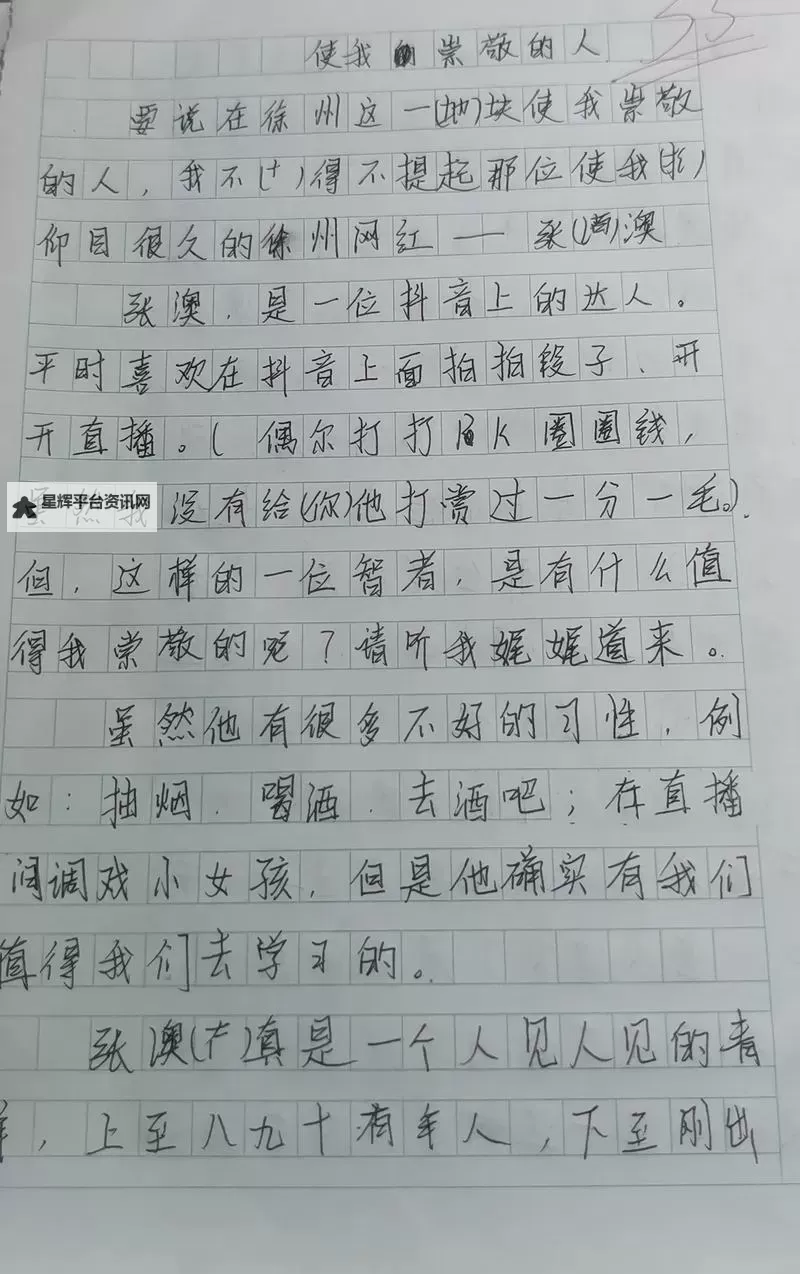 55
使我的崇敬的人
要说在徐州这一(地)块使我崇敬
的人，我不(十)得不提起那位使我(扌)
仰目很久的徐州网红——张(酉)澳
张澳，是一位抖音上的达人。
平时喜欢在抖音上面拍拍段子、开
开直播。(偶尔打打PK圈圈钱，
星辉平台资讯网
虽然我没有给(你)他打赏过一分一毛。).
但，这样的一位智者，是有什么值
得我崇敬的呢？请听我娓娓道来。
虽然他有很多不好的习性，例
如：抽烟、喝酒、去酒吧；在直播
间调戏小女孩，但是他确实有我们
值得我们去学习的。
张澳()真是一个人见人见的青
，上至八九十有年人，下至刚出